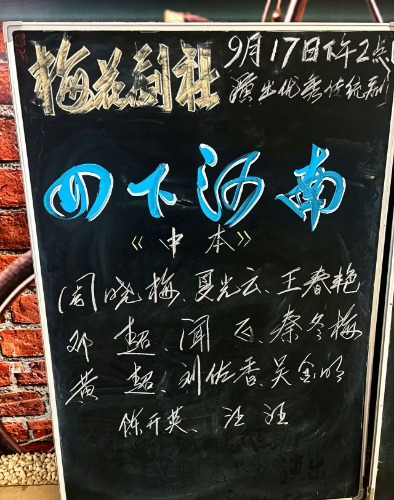 梅花剧社
9月17日下午2点
演出优秀传统剧
四下河南
《中本》
周晓梅、夏光云、王春艳
邓超、闻飞、秦冬梅
黄超、刘佐香、吴金明
徐开英、汪汪